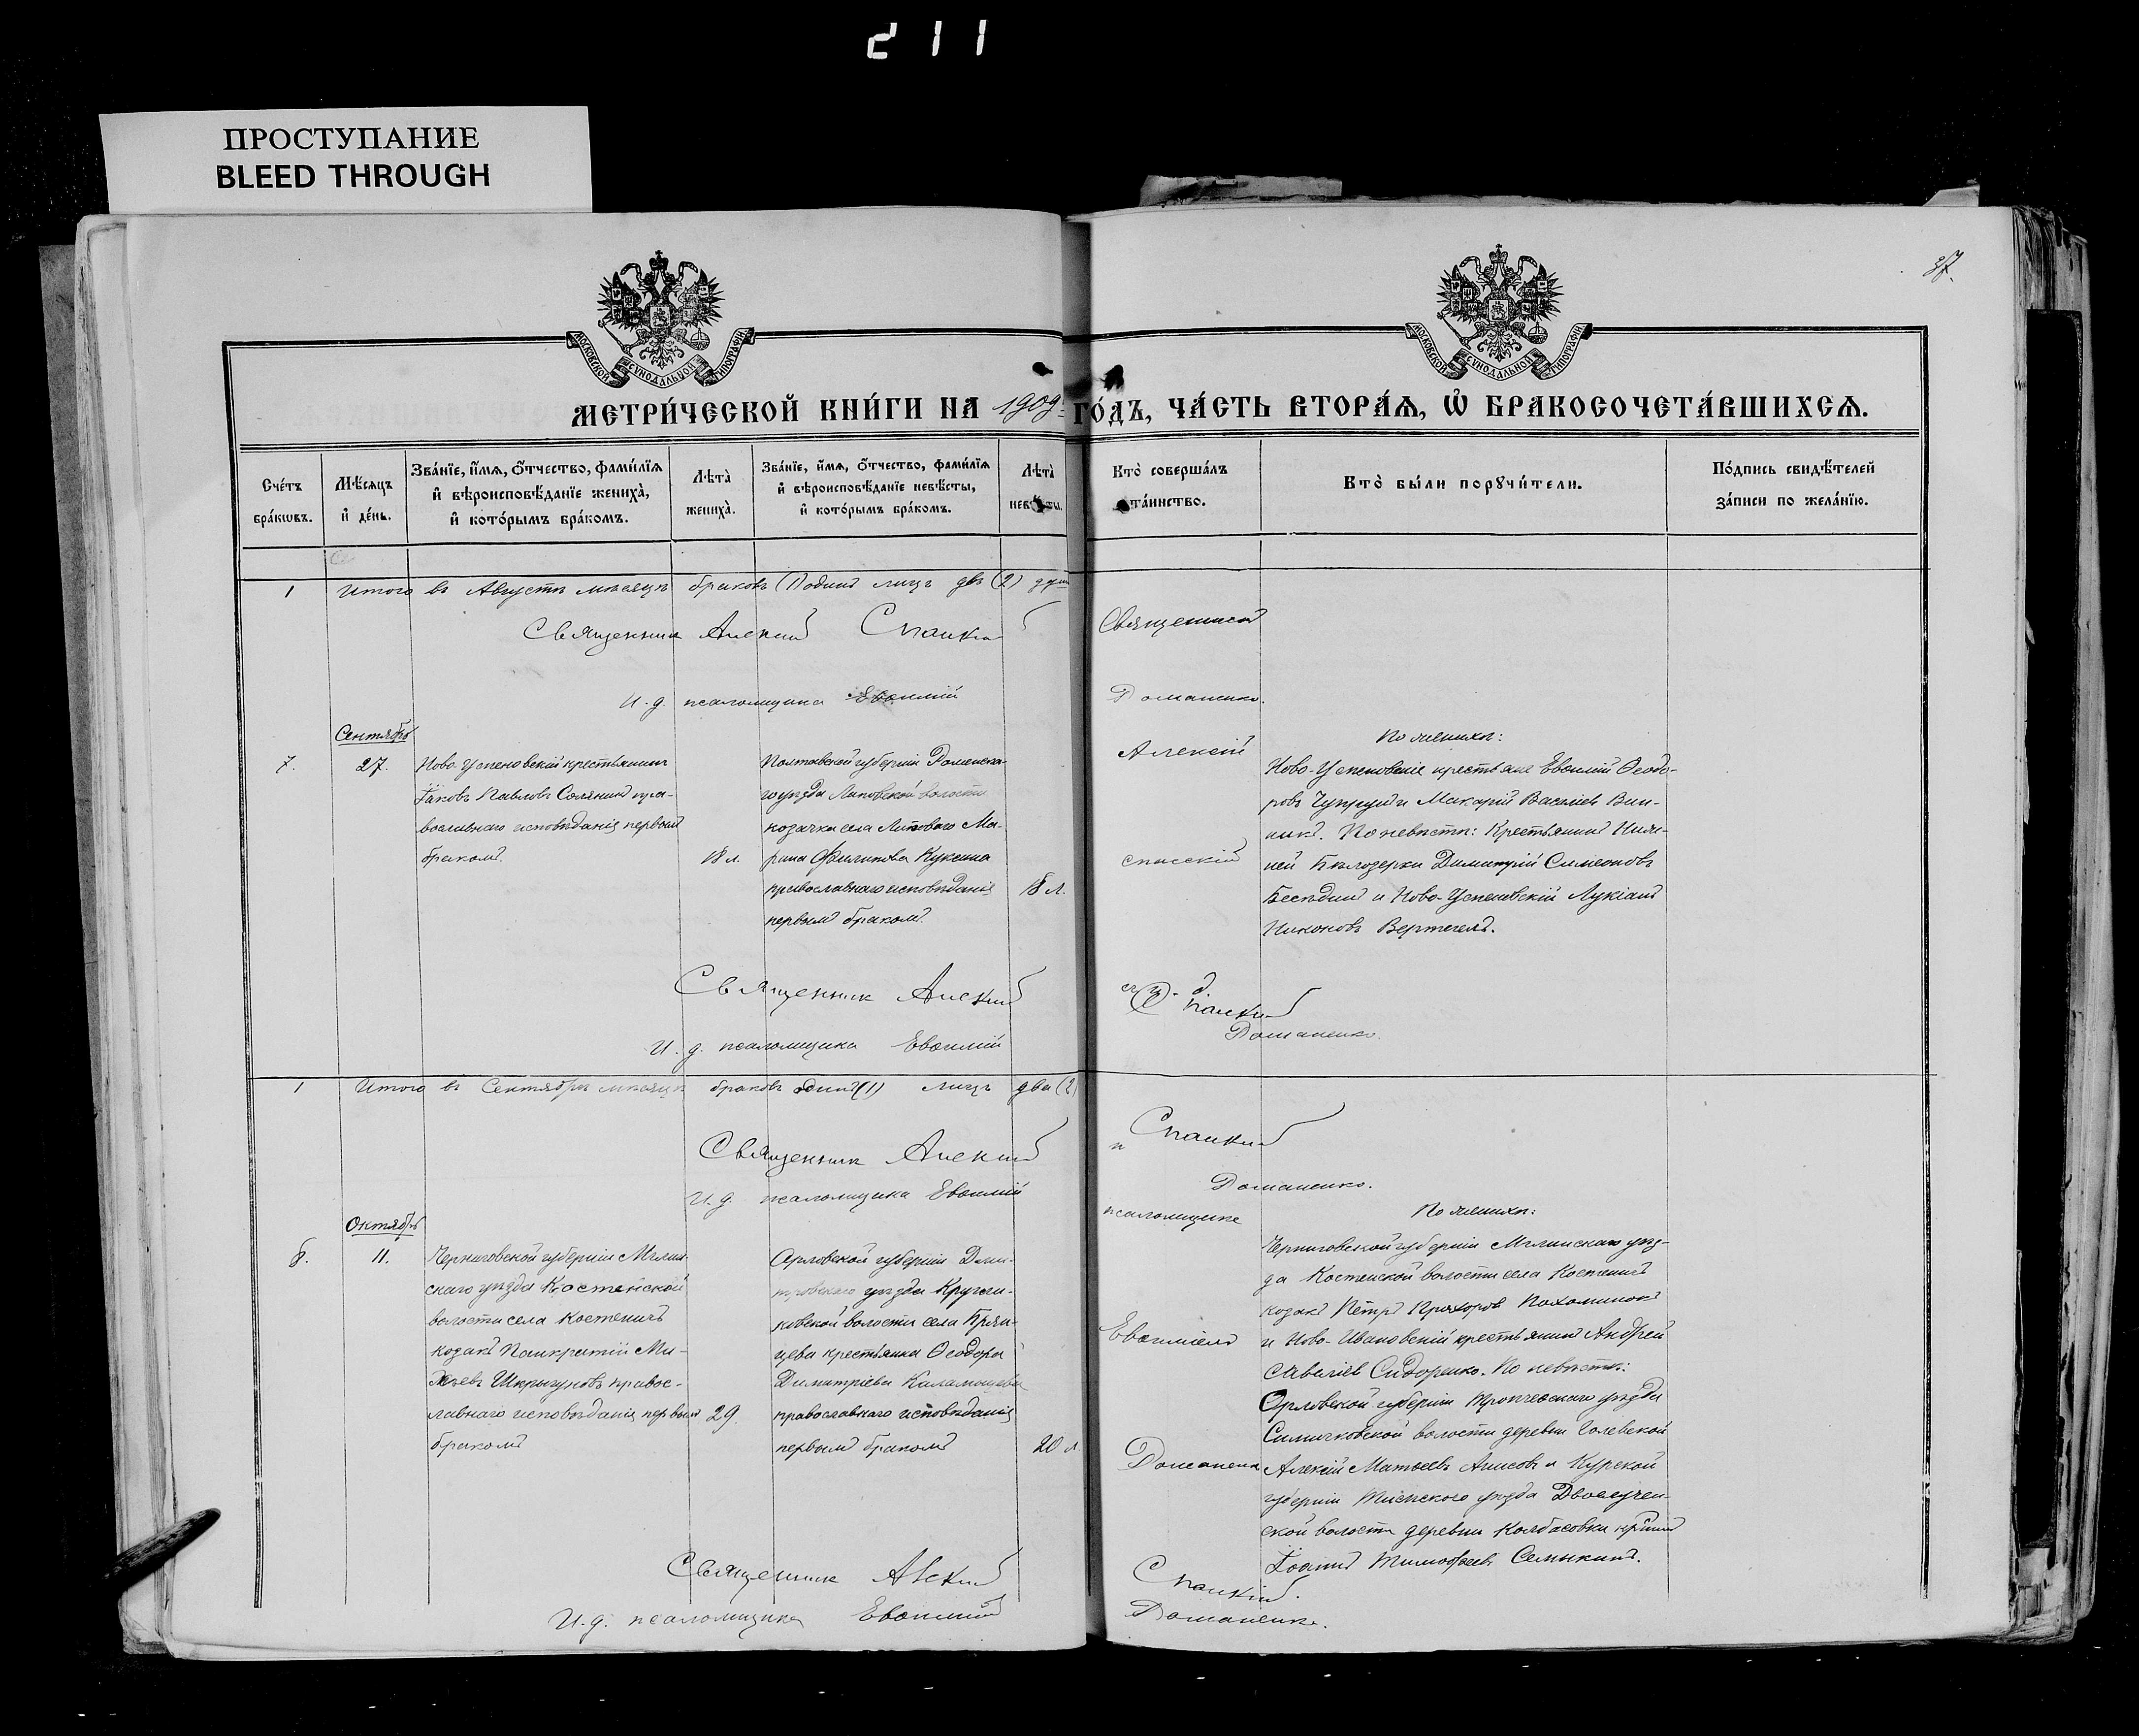 211
ПРОСТУПАНИЕ
BLEED THROUGH
37.
МОСКОВСКОЙ СѴНОДАЛЬНОЙ ТИПОГРАФІИ
МОСКОВСКОЙ СѴНОДАЛЬНОЙ ТИПОГРАФІИ
МЕТРИ́ЧЕСКОЙ КНИ́ГИ НА 1909 ГО́ДЪ, ЧА́СТЬ ВТОРА́Ѧ, Ѽ БРАКОСОЧЕТА́ВШИХСѦ.
Сче́тъ бра́кѡвъ.
Мѣ́сяцъ и҆ де́нь.
Зва́нїе, и҆́мѧ, ѻ҆́тчество, фами́лїѧ
и҆ вѣроисповѣ́данїе жениха̀,
и҆ кото́рымъ бра́комъ.
Лѣта̀ жениха̀.
Зва́нїе, и҆́мѧ, ѻ҆́тчество, фами́лїѧ
и҆ вѣроисповѣ́данїе невѣ́сты,
и҆ кото́рымъ бра́комъ.
Лѣта̀ невѣ́сты.
Кто̀ соверша́лъ та́инство.
Кто̀ бы́ли порꙋчи́тели.
По́дпись свидѣ́телей за́писи по жела́нїю.
1 Итого въ Августѣ мѣсяцѣ браковъ (1) одинъ лицъ двѣ (2)
Священникъ Алексій Спасскій
И. д. псаломщика Евѳимій Доманенко.
Сентябрь
7. 27.
Ново-Успеновскій крестьянинъ
Іаковъ Павловъ Солянинъ пра-
вославнаго исповѣданія первымъ
бракомъ.
18 л.
Полтавской губерніи Роменска-
го уѣзда Липовской волости
козачка села Липоваго Ма-
рина Филипова Кукоша
православнаго исповѣданія
первымъ бракомъ.
18 л.
Священникъ
Алексій
Спасскій
По женихѣ:
Ново-Успеновскіе крестьяне Евѳимій Ѳеодо-
ровъ Чупрунъ и Макарій Василіевъ Вин-
никъ. По невѣстѣ: Крестьянинъ Ниж-
ней Бѣлозерки Димитрій Симеоновъ
Бесѣдинъ и Ново-Успеновскій Лукіанъ
Никоновъ Вертегелъ.
Священникъ Алексій Спасскій
И. д. псаломщика Евѳимій Доманенко.
1 Итого въ Сентябрѣ мѣсяцѣ браковъ одинъ (1) лицъ два (2)
Священникъ Алексій Спасскій
И. д. псаломщика Евѳимій Доманенко.
Октябрь
8. 11.
Черниговской губерніи Мглин-
скаго уѣзда Костенской
волости села Костеничъ
козакъ Панкратій Ми-
хѣевъ Шкрыгуновъ правос-
лавнаго исповѣданія первымъ
бракомъ
29.
Орловской губерніи Дми-
тровскаго уѣзда Кругли-
ковской волости села Брян-
цева крестьянка Ѳеодора
Димитріева
православнаго исповѣданія
первымъ бракомъ
20 л
псаломщике
Евѳиміемъ
По женихѣ:
Черниговской губерніи Мглинскаго уѣз-
да Костенской волости села Костеничъ
козакъ Петръ Прохоровъ
и Ново-Ивановскій крестьянинъ Андрей
Савеліевъ Сидоренко. По невѣстѣ:
Орловской губерніи Тропчевскаго уѣзда
волости деревни
Алексій Матѳеевъ и Курской
губерніи уѣзда
ской волости деревни Колбасовки
Іоаннъ Тимоѳеевъ Семыкинъ.
Священникъ Алексій Спасскій.
И. д. псаломщика Евѳимій Доманенко.